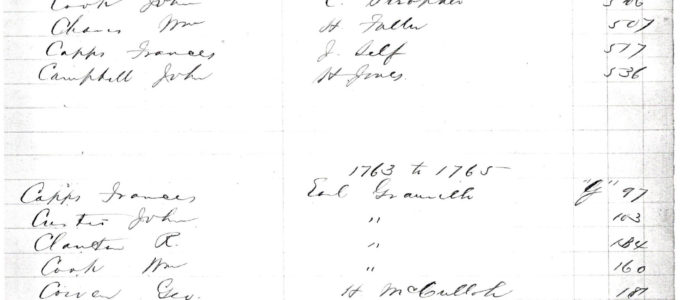 Cook John C. 506
Chavis Wm H Fuller 507
Capps Frances J. Self 517
Campbell John H Jones 536
1763 to 1765
Capps Frances Earl Granville "G" 97
Curtis John " 103
Clanton R. " 184
Cook Wm " 160
Cowen Geo. H McCulloh 181